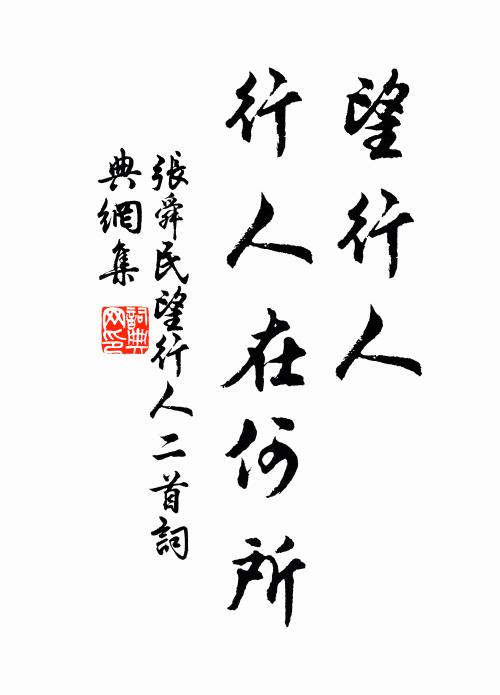 望行人
行人在何所
張舜民望行人二首詞
典網集
詞典
网印